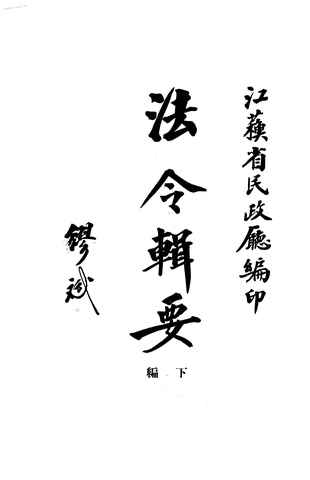 江蘇省民政廳編印
法令輯要
下編
繆斌